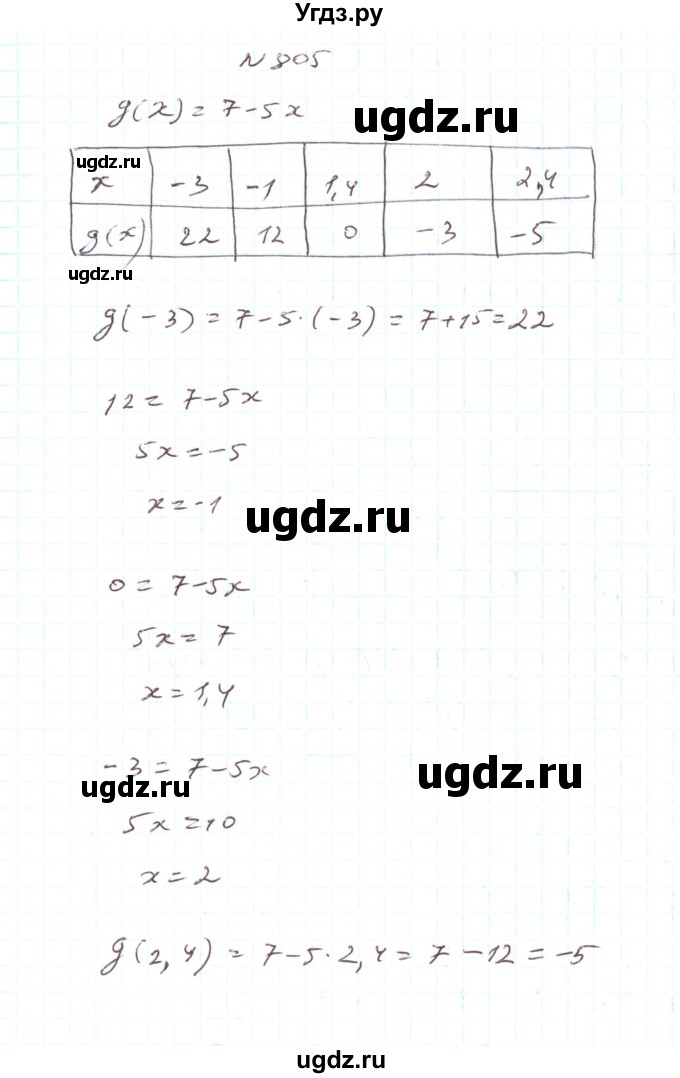 Угдз.ру
N 805
g(x) = 7-5x
ugdz.ru
ugdz.ru
x -3 -1 1,4 2 2,4
g(x) 22 12 0 -3 -5
ugdz.ru
g(-3) = 7-5·(-3) = 7+15=22
12 = 7-5x
5x = -5
x = -1
ugdz.ru
0 = 7-5x
5x = 7
x = 1,4
-3 = 7-5x
ugdz.ru
ugdz.ru
5x = 10
x = 2
g(2,4) = 7-5·2,4 = 7-12 = -5
ugdz.ru